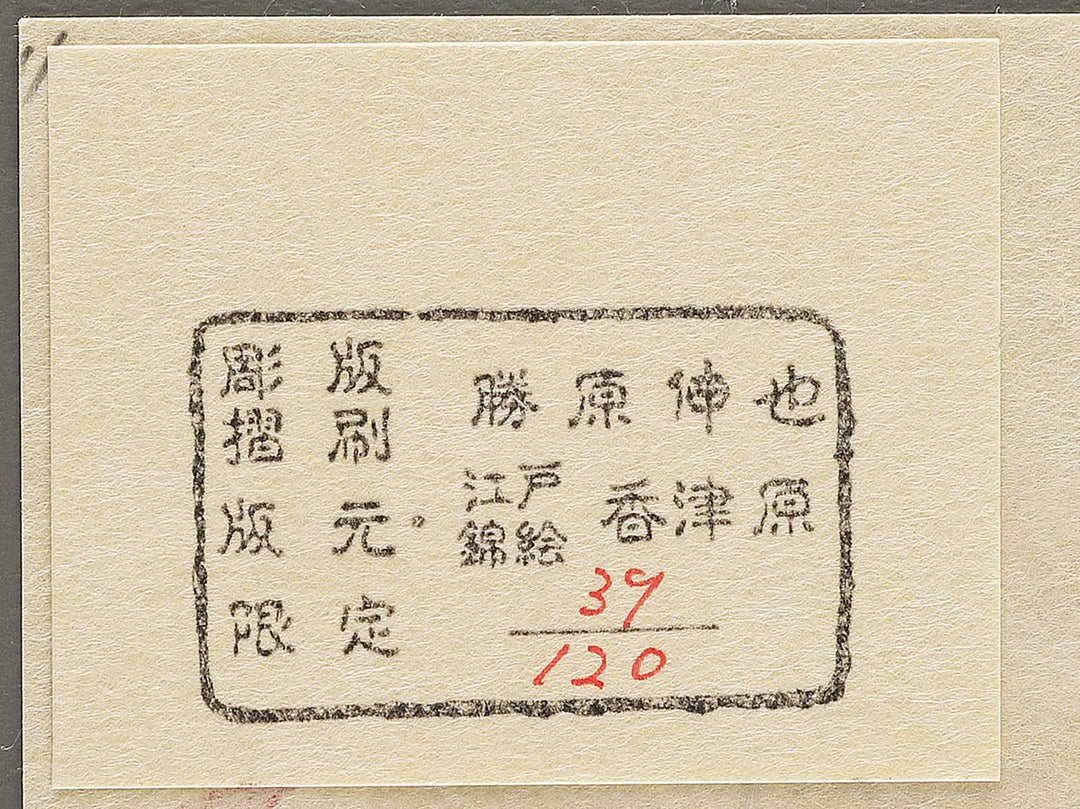 彫版
摺刷
勝原伸也
版元
江戸
錦絵
香津原
限定
39
120